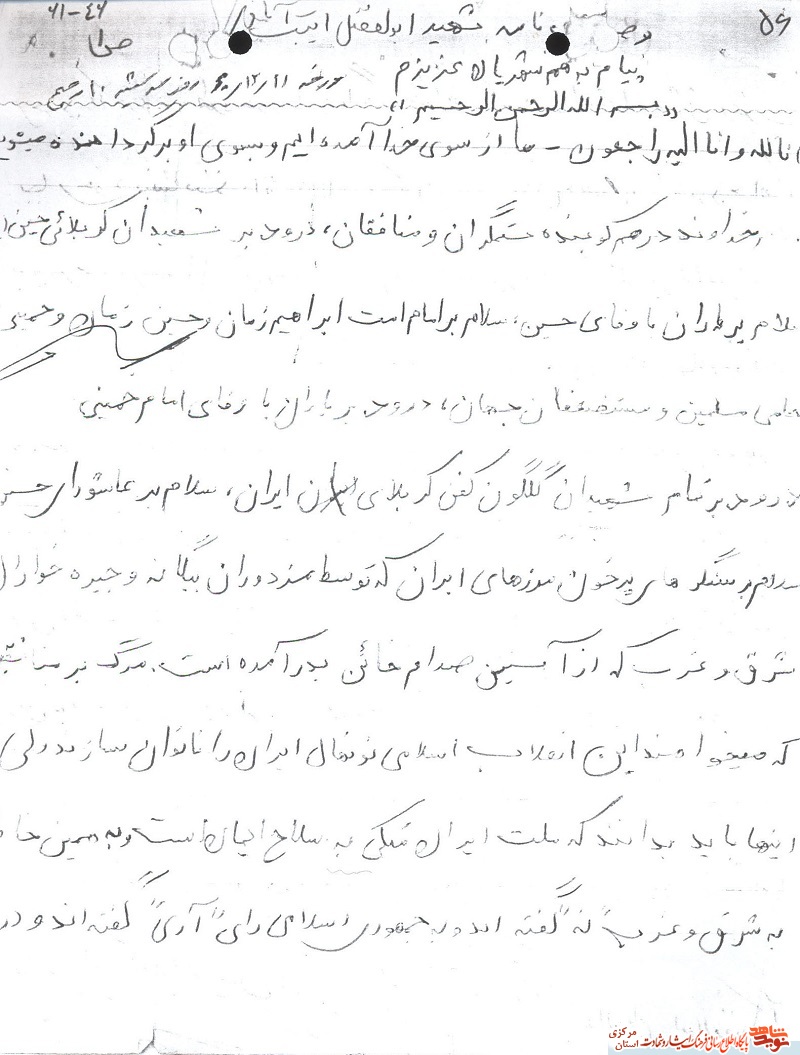 ۵۶
۶۱-۴۶
وصیت نامه شهید ابوالفضل
پیام به هم شهریان عزیزم
مورخه ۶۰/۱۲/۱۱ روز سه شنبه
«بسم الله الرحمن الرحیم»
انا لله و انا الیه راجعون - ما از سوی خدا آمده ایم و بسوی او برگردانده میشویم
بنام خداوند درهم کوبنده ستمگران و منافقان، درود بر شهیدان کربلائی حسین
سلام بر یاران با وفای حسین، سلام بر امام امت ابراهیم زمان و حسین زمان و خمینی
حامی مسلمین و مستضعفان جهان، درود بر یاران با وفای امام خمینی
درود بر تمام شهیدان گلگون کفن کربلای ایران، سلام بر عاشورای
سلام بر سنگرهای پرخون مرزهای ایران که توسط مزدوران بیگانه و جیره خواران
شرق و غرب که از آستین صدام خائن بدر آمده است. مرگ بر
که میخواهند این انقلاب اسلامی نونهال ایران را ناتوان سازند ولی
اینها باید بدانند که ملت ایران متکی به سلاح ایمان است و به همین
به شرق و غرب "نه" گفته اند و به جمهوری اسلامی رای "آری" گفته اند و در
نوید شاهد
پایگاه اطلاع رسانی فرهنگ ایثار و شهادت
استان مرکزی